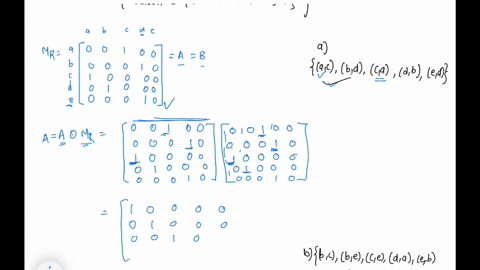 a b c d e
a 0 0 1 0 0
MR= b 0 0 0 1 0 = A = B
c 1 0 0 0 0
d 0 1 0 0 0
e 0 0 0 1 0
a)
{(a,c), (b,d), (c,a), (d,b), (e,d)}
A = A ⊙ MR = [0 0 1 0 0] [0 0 1 0 0]
0 0 0 1 0 0 0 0 1 0
1 0 0 0 0 1 0 0 0 0
0 1 0 0 0 0 1 0 0 0
0 0 0 1 0 0 0 0 1 0
= [1 0 0 0 0
0 1 0 0 0
0 0 1 0
b) {(b,c), (b,e), (c,e), (d,a), (e,b)